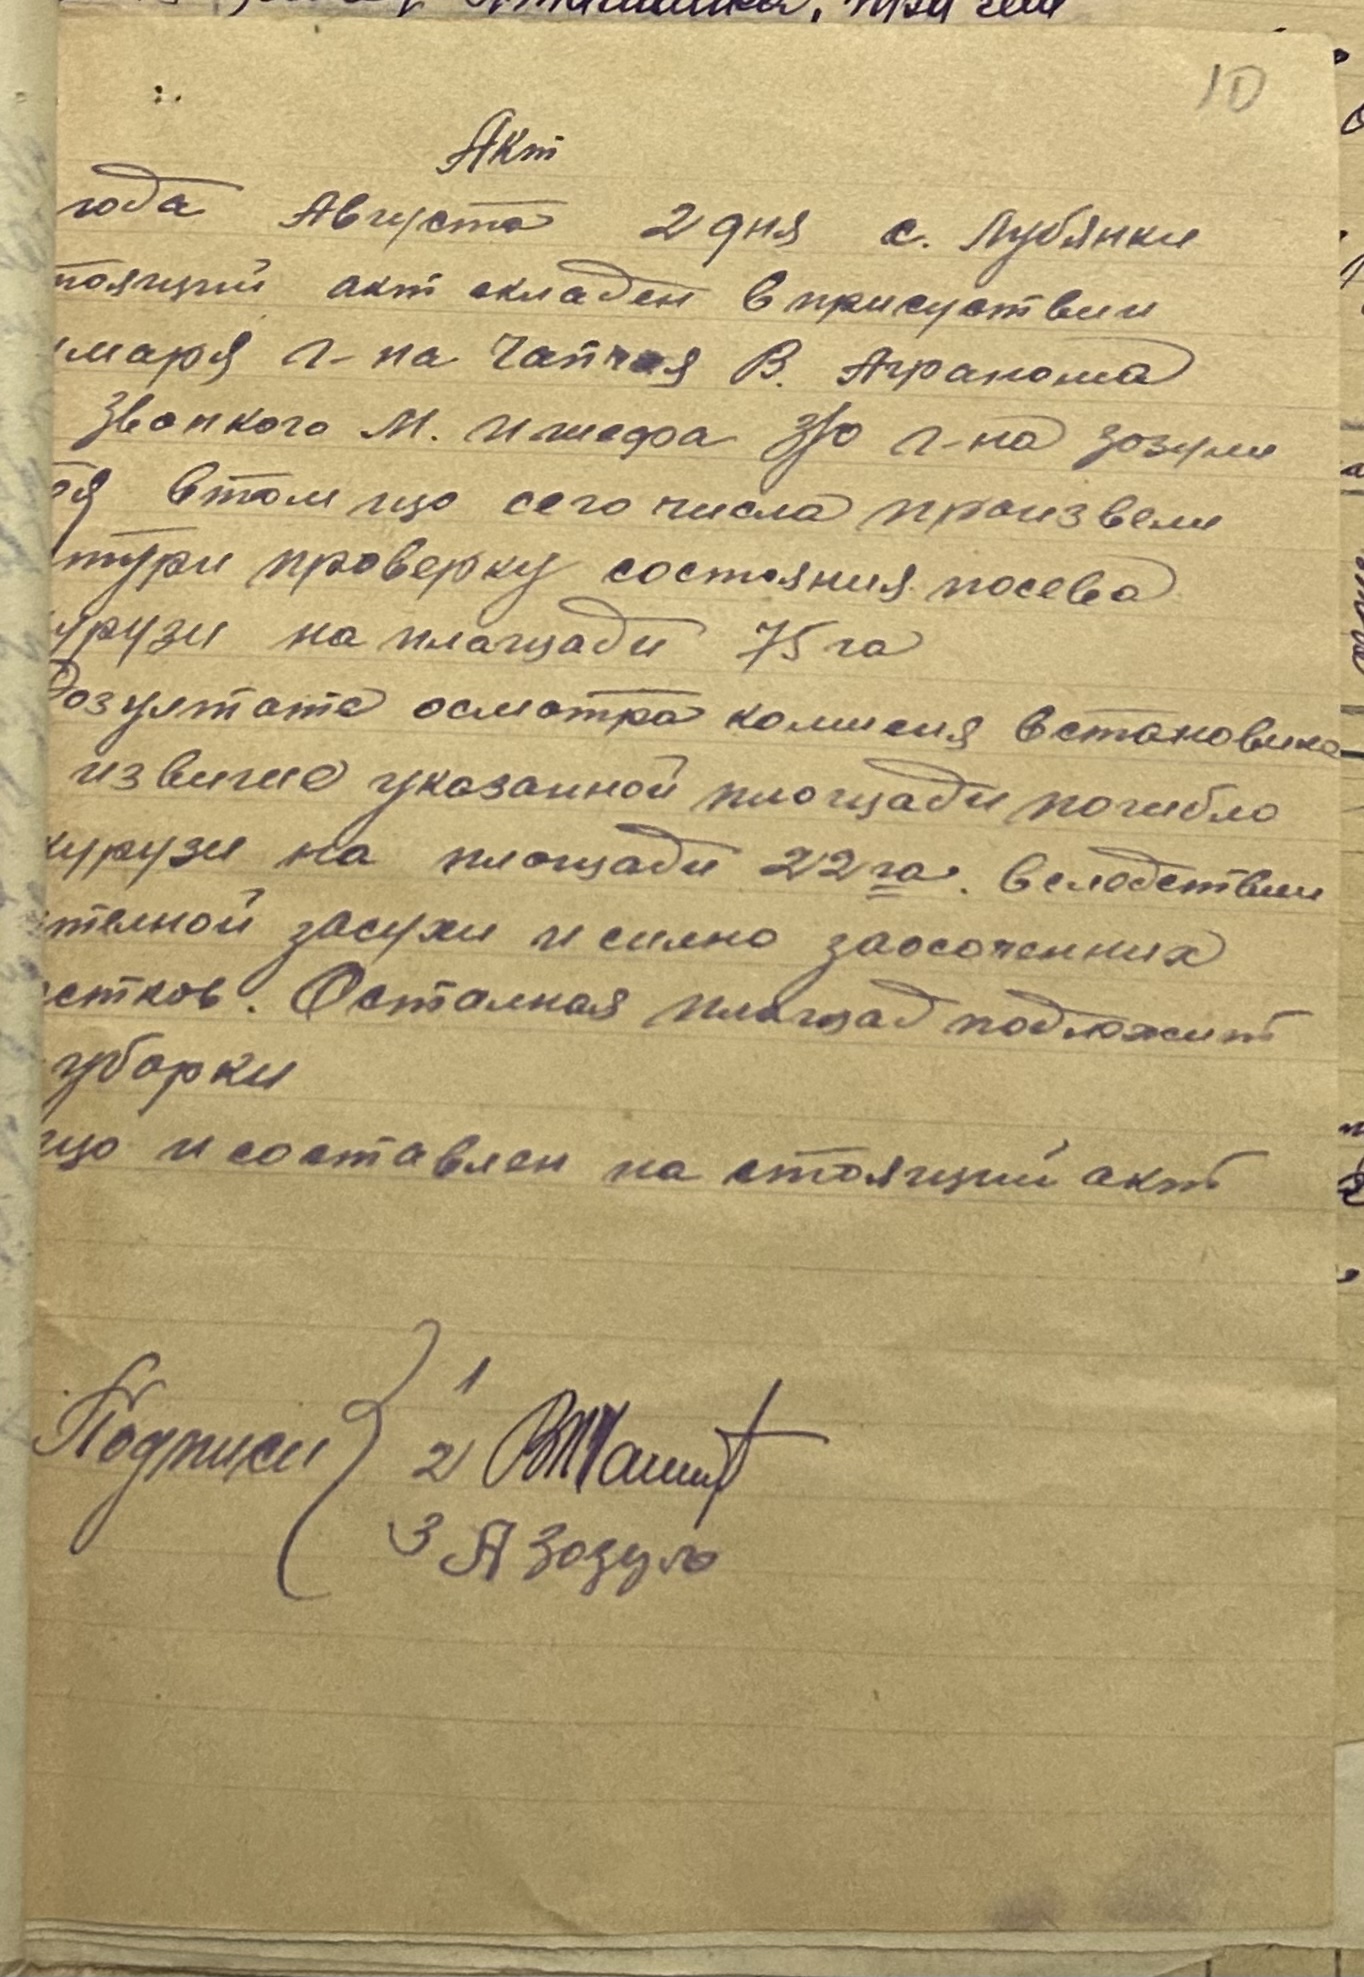 10
Акт
года Августа 2 дня с. Лубянки
тоящий акт складен в присуствии
маря г-на Чапчая В. Агранома
Звонкого М. и шефа з/о г-на Зозули
втом що сего числа произвели
тури проверку состояния посева
урузи на площади 75 га
Розултате осмотра комисия встановила
из вигие указанной площади погибло
курузи на площади 22 га. вследствии
телной засухи и силно заосоченних
стков. Осталная площад подлежит
уборки
що и составлен на стоящий акт
Подписи
1
2
3 А Зозуля